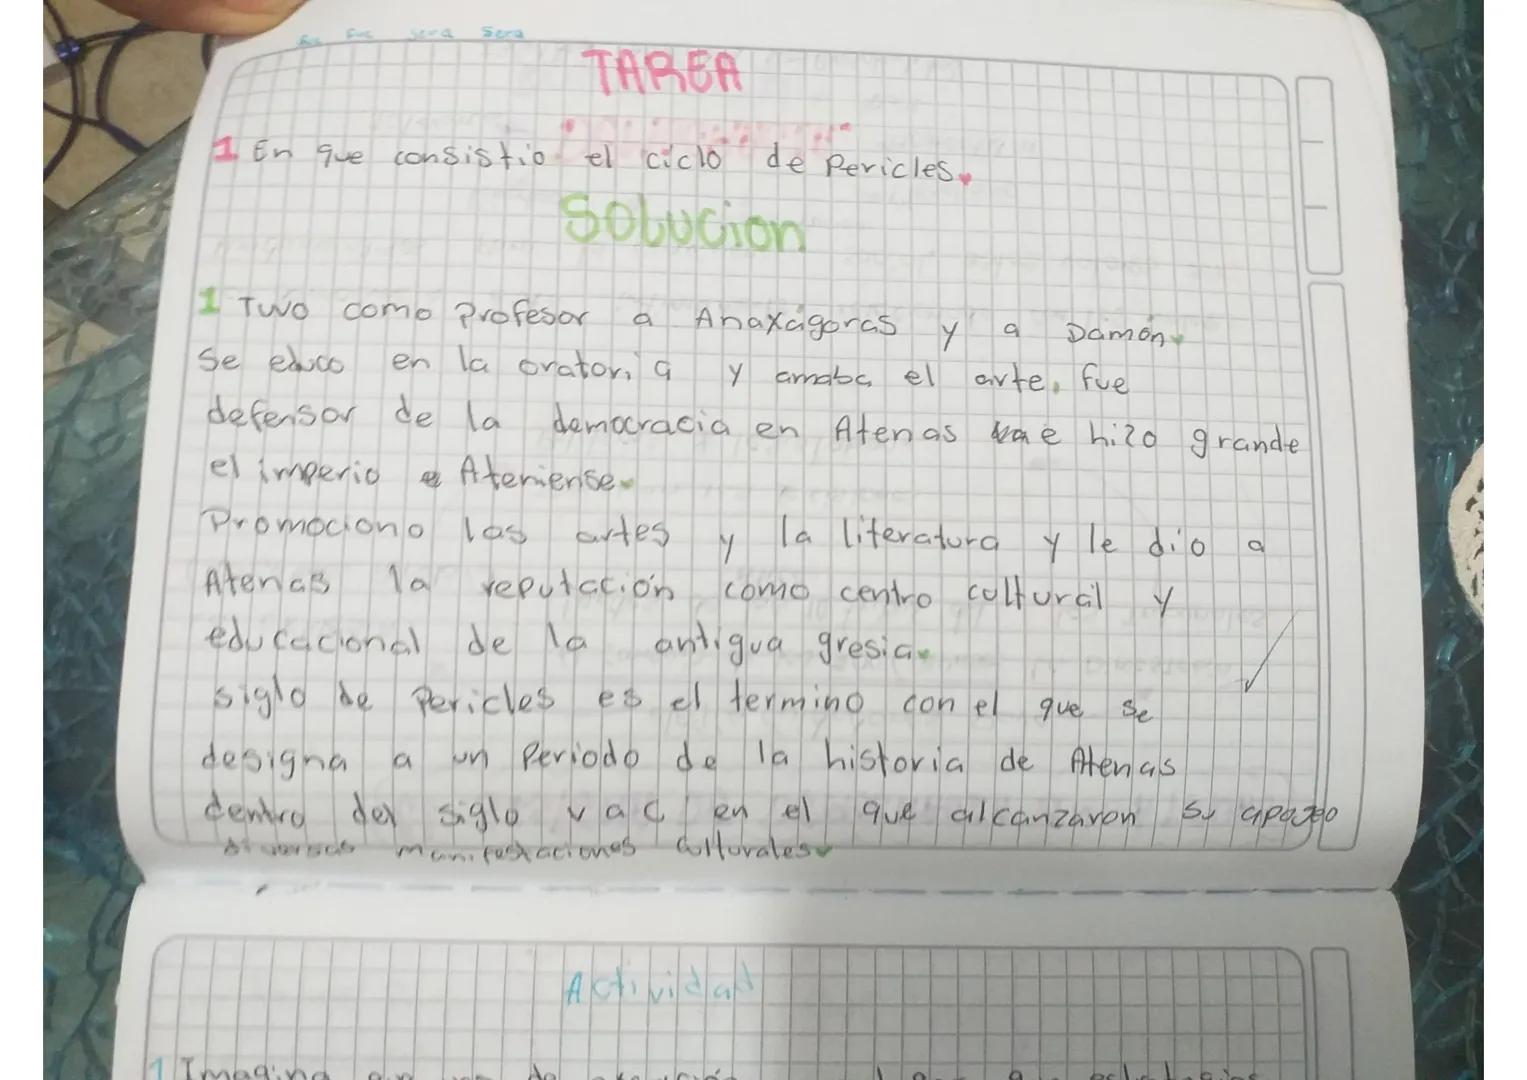 sera sera
TAREA
1 En que consistio el ciclo de Pericles.
Solucion
1 Tuvo como Profesor a Anaxágoras y a Damón.
Se educo en la oratoria y amaba el arte. fue
defensor de la democracia en Atenas e hizo grande
el imperio Ateniense.
Promociono las artes y la literatura y le dio a
Atenas la reputación como centro cultural y
educacional de la antigua gresia.
siglo de Pericles es el termino con el que se
designa a un Periodo de la historia de Atenas
dentro del siglo v a C en el que alcanzaron su apogeo
diversas manifestaciones culturales.
Actividad
1 Imagina que